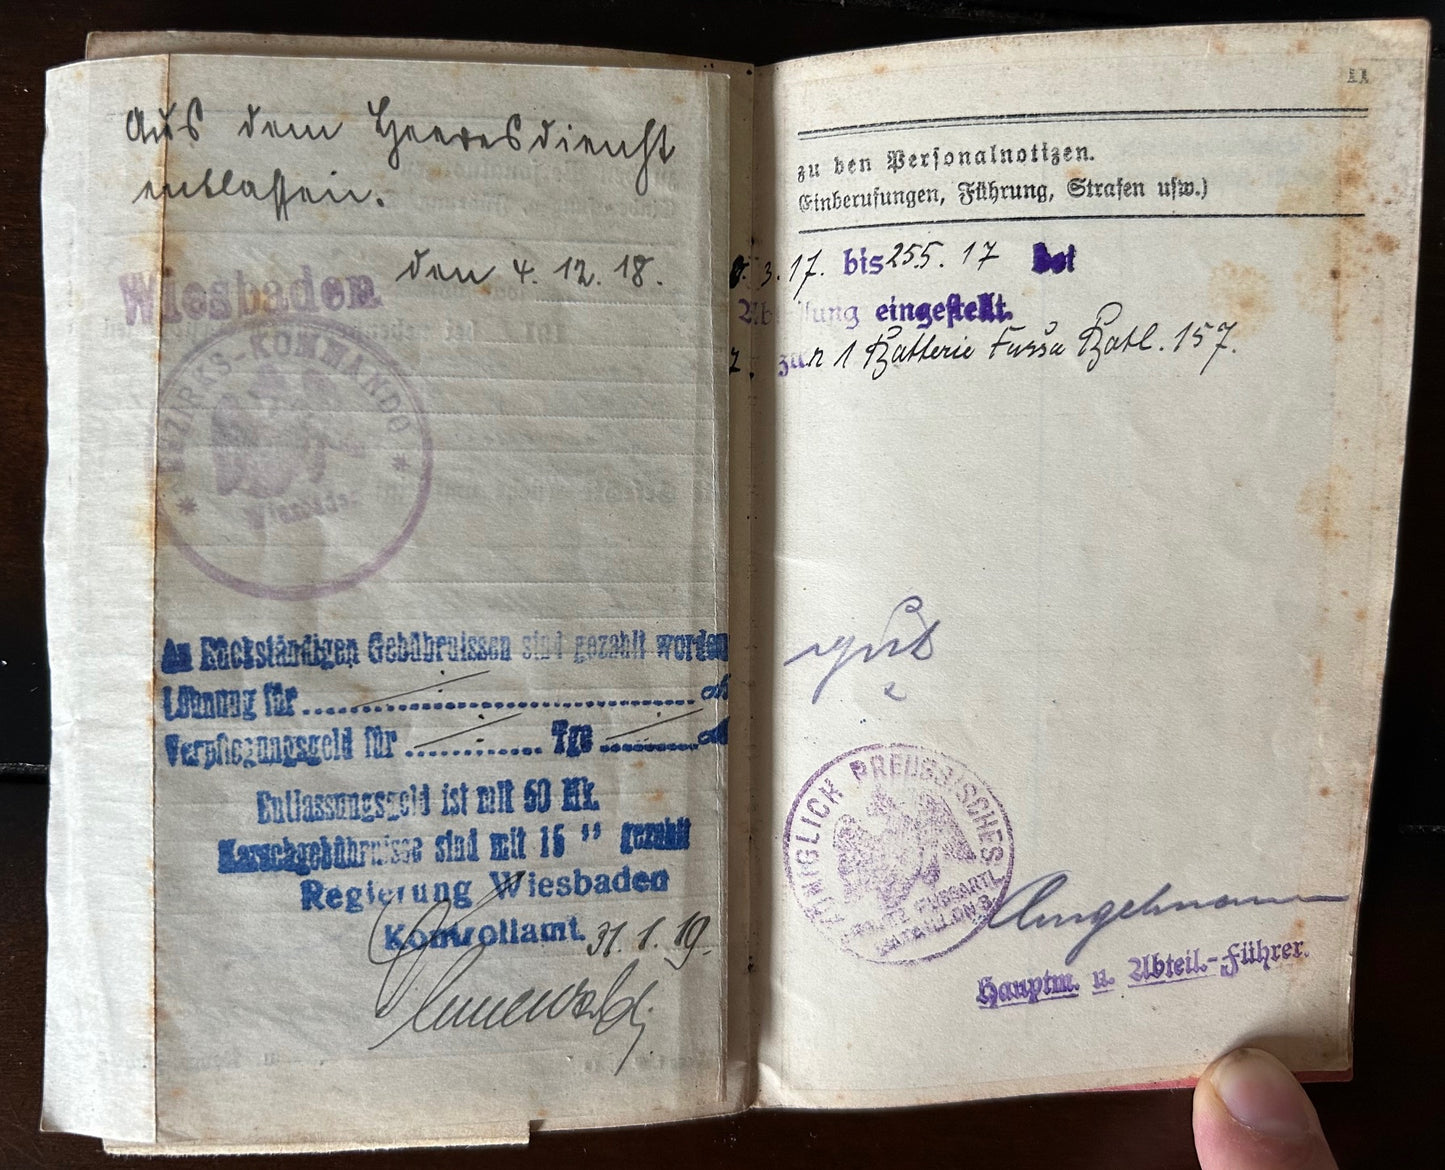 Aus dem Heeresdienst
entlassen.
Wiesbaden den 4. 12. 18.
BEZIRKS-KOMMANDO
Wiesbaden
An Rückständigen Gebührnissen sind gezahlt worden
Löhnung für
Verpflegungsgeld für Tge
Entlassungsgeld ist mit 50 Mk.
Marschgebührnisse sind mit 15 " gezahlt
Regierung Wiesbaden
Kontrollamt. 31. 1. 19.
11
zu den Personalnotizen.
Einberufungen, Führung, Strafen usw.)
3. 17. bis 25 5. 17 bei
eingestellt.
zur 1 Batterie Fussa Batl. 157.
gut
KÖNIGLICH PREUSSISCHES
FUSSARTL.
BATAILLON 3
Hauptm. u. Abteil.-Führer.